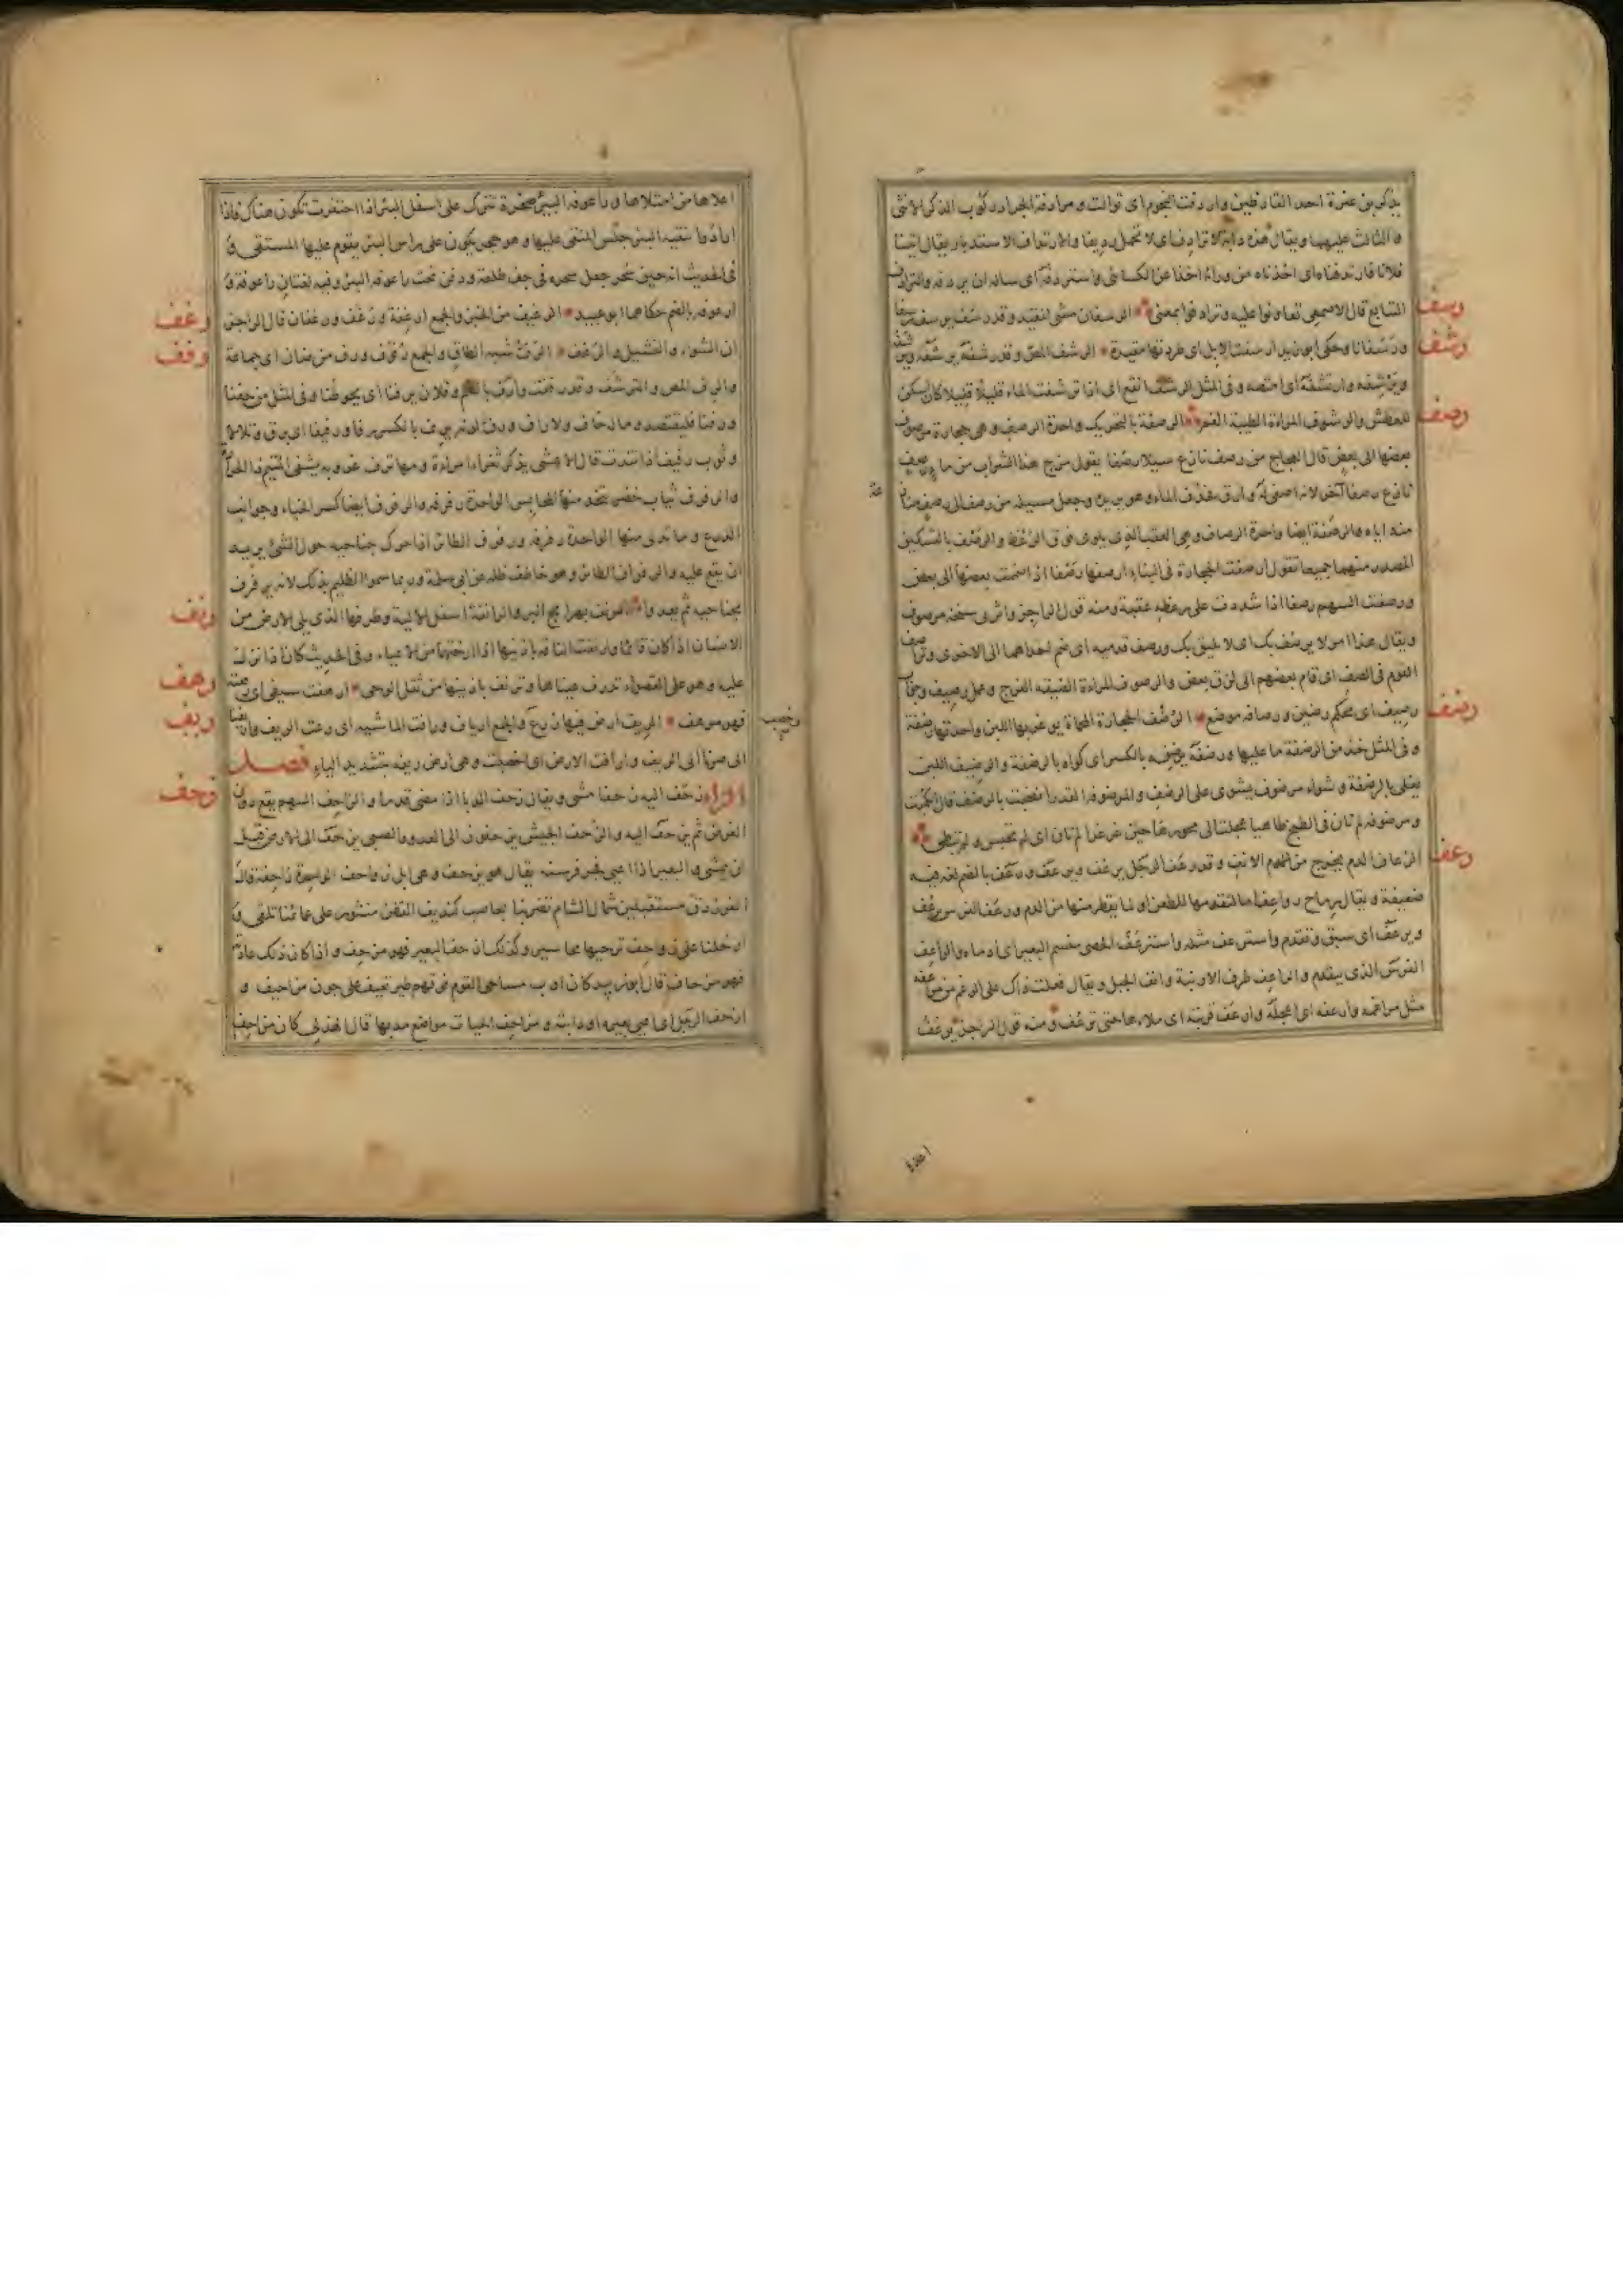 يذكر بن عنزة احد القارظين واردفت النجوم اى توالت ومرادفة الجراد ركوب الذكر الانثى
والثالث عليهما ويقال هذه دابة لا ترادف اى لا تحمل رديفا والارتداف الاستدبار يقال اتينا
فلانا فارتدفناه اى اخذناه من ورائه اخذا عن الكسائى واستردفه اى ساله ان يردفه والترادف
رسف
التتابع قال الاصمعى تعاونوا عليه وترادفوا بمعنى الرسفان مشى المقيد وقد رسف يرسف رسفا
رشف
ورسفانا وحكى ابو زيد ارسفت الابل اى طردتها مقيدة الرشف المص وقد رشفه يرشفه
ويرشفه وارتشفه اى امتصه وفى المثل الرشف انقع اى اذا ترشفت الماء قليلا قليلا كان اسكن
رصف
للعطش والرشوف المراة الطيبة الفم الرصفة بالتحريك واحدة الرصف وهى حجارة مرصوف
بعضها الى بعض قال العجاج من رصف نازع سيلا رصفا يقول مزج هذا الشراب من ماء رصف
نازع رصفا آخر لانه اصفى له وارق فحذف الماء وهو يريده وجعل مسيله من رصف الى رصف منازعة
منه اياه والرصفة ايضا واحدة الرصاف وهى العقب الذى يلوى فوق الرعظ والرصف بالتسكين
المصدر منهما جميعا تقول رصفت الحجارة فى البناء ارصفها رصفا اذا ضممت بعضها الى بعض
ورصفت السهم رصفا اذا شددت على رعظه عقبة ومنه قول الراجز واثربى سنخه مرصوف
ويقال هذا امر لا يرصف بك اى لا يليق بك ورصف قدميه اى ضم احداهما الى الاخرى وتراصف
القوم فى الصف اى قام بعضهم الى لزق بعض والرصوف المراة الضيقة الفرج وعمل رصيف وجواب
رضف
رصيف اى محكم رصين ورصافة موضع الرضف الحجارة المحماة يوغر بها اللبن واحدتها رضفة
وفى المثل خذ من الرضفة ما عليها ورضفه يرضفه بالكسر اى كواه بالرضفة والرضيف اللبن
يغلى بالرضفة وشواء مرضوف يشوى على الرضف والمرضوفة القدر انضجت بالرضف قال الكميت
ومرضوفة لم تؤن فى الطبخ طاهيا عجلت الى محورها حين غرغرا لم تؤن اى لم تحبس ولم تبطئ
رعف
الرعاف الدم يخرج من الانف وقد رعف الرجل يرعف ويرعف ورعف بالضم لغة فيه
ضعيفة ويقال للرماح رواعف لما تقدمها للطعن او لما يقطر منها من الدم ورعف الفرس يرعف
ويرعف اى سبق وتقدم واسترعف مثله واسترعف الحصى منسم البعير اى ادماه والراعف
الفرس الذى يتقدم والراعف طرف الارنبة وانف الجبل ويقال فعلت ذاك على الرغم من مراعفه
مثل مراغمه وارعفه اى اعجله وارعف قربته اى ملاها حتى ترعف ومنه قول الراجز يرعف
اعلاها من امتلائها وراعوفة البئر صخرة تترك على اسفل البئر اذا احتفرت تكون هناك فاذا
ارادوا تنقية البئر جلس المنقى عليها وهو حجر يكون على راس البئر يقوم عليها المستقى و
فى الحديث انه حين سحر جعل سحره فى جف طلعة ودفن تحت راعوفة البئر وفيه لغتان راعوفة و
رغف
ارعوفة بالضم حكاهما ابو عبيد الرغيف من الخبز والجمع ارغفة ورغف ورغفان قال الراجز
رفف
ان الشواء والنشيل والرغف الرف شبه الطاق والجمع رفوف ورف من ضان اى جماعة
والرف المص والترشف وقد رففت ارف بالضم وفلان يرفنا اى يحوطنا وفى المثل من حفنا
ورفنا فليقتصد وما له حاف ولا راف ورف لونه يرف بالكسر رفا ورفيفا اى برق وتلالا
وثوب رفيف اذا تندت قال الاعشى يذكر ثغر امراة ومها ترف غروبه يشفى المتيم ذا الحرارة
والرفرف ثياب خضر تتخذ منها المحابس الواحدة رفرفة والرفرف ايضا كسر الخباء وجوانب
الدرع وما تدلى منها الواحدة رفرفة ورفرف الطائر اذا حرك جناحيه حول الشئ يريد
ان يقع عليه والرفراف الطائر وهو خاطف ظله عن ابى سلمة وربما سموا الظليم بذلك لانه يرفرف
رنف
بجناحيه ثم يعدو الرنف بهرامج البر والرانفة اسفل الالية وطرفها الذى يلى الارض من
الانسان اذا كان قائما وارنفت الناقة باذنيها اذا ارختهما من الاعياء وفى الحديث كان اذا نزل
رهف
عليه وهو على القصواء تذرف عيناها وترنف باذنيها من ثقل الوحى ارهفت سيفى اى رققته
ريف
وخصب
فهو مرهف الريف ارض فيها زرع والجمع ارياف ورافت الماشية اى رعت الريف واريفنا
اى صرنا الى الريف وارافت الارض اى اخصبت وهى ارض ريفة بتشديد الياء فصل
زحف
الزاء زحف اليه زحفا مشى ويقال زحف الدبا اذا مضى قدما والزاحف السهم يقع دون
الغرض ثم يزحف اليه والزحف الجيش يزحفون الى العدو والصبى يزحف الى الارض قبل
ان يمشى والبعير اذا اعيى فجر فرسنه يقال هو يزحف وهى ابل زواحف الواحدة زاحفة قال
الفرزدق مستقبلين شمال الشام تضربنا بحاصب كنديف القطن منثور على عمائمنا تلقى و
ارحلنا على زواحف نزجيها محاسير وكذلك ازحف البعير فهو مزحف واذا كان ذلك عادته
فهو مزحاف قال ابو زبيد كان اوب مساحى القوم فوقهم طير تعيف على جون مزاحيف و
ازحف الرجل اى اعيى بعيره او دابته ومزاحف الحيات مواضع مدبها قال الهذلى كان مزاحف